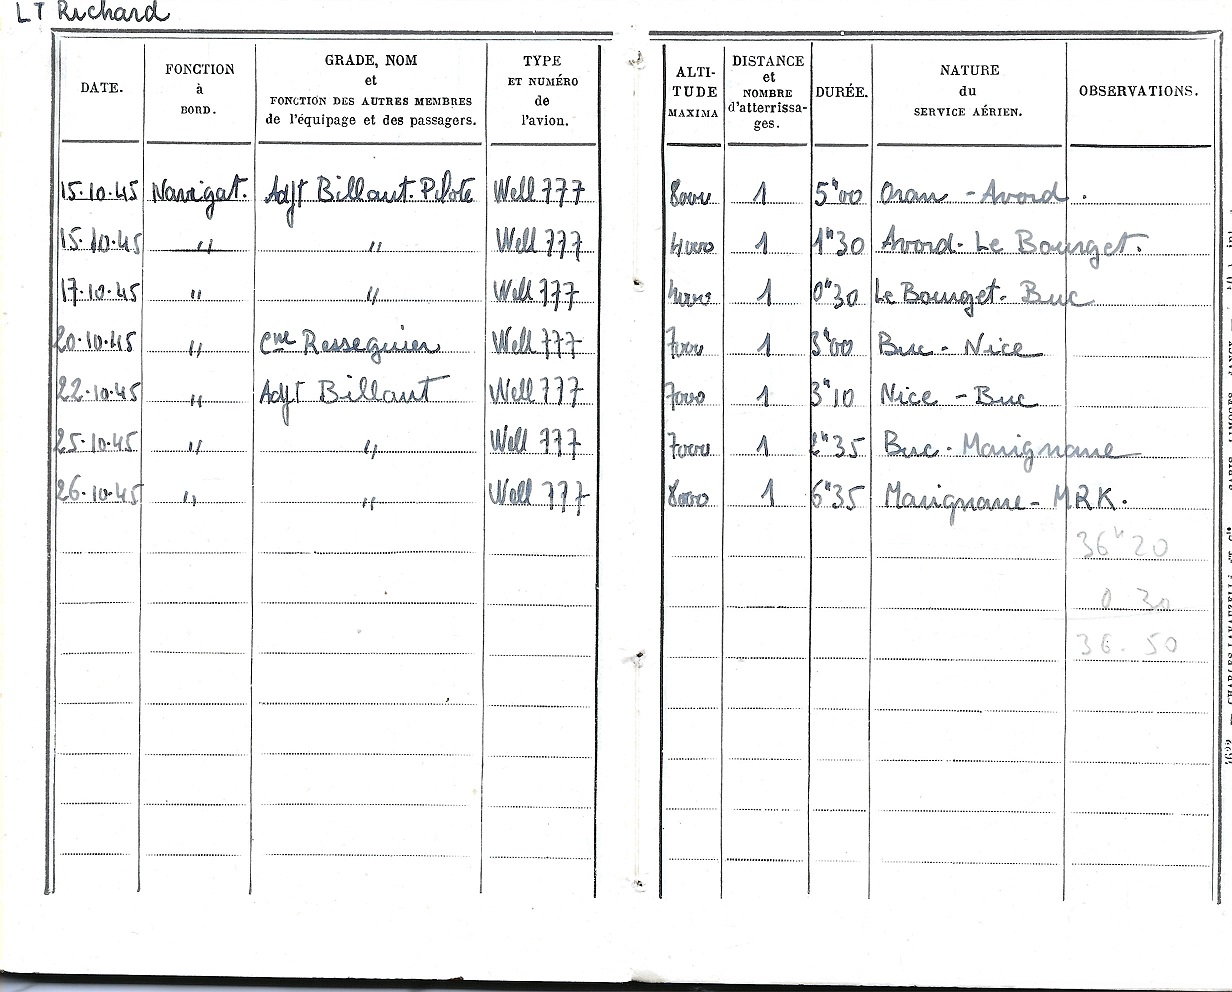 LT Richard
DATE.
FONCTION
à
BORD.
GRADE, NOM
et
FONCTION DES AUTRES MEMBRES
de l'équipage et des passagers.
TYPE
ET NUMÉRO
de
l'avion.
ALTI-
TUDE
MAXIMA
DISTANCE
et
NOMBRE
d'atterrissa-
ges.
DURÉE.
NATURE
du
SERVICE AÉRIEN.
OBSERVATIONS.
15.10.45 Navigat. Adjt Billaut. Pilote Well 777 8000 1 5h00 Oran - Avord.
15.10.45 " " Well 777 4000 1 1h30 Avord - Le Bourget.
17.10.45 " " Well 777 4000 1 0h30 Le Bourget - Buc
20.10.45 " Cne Resseguier Well 777 7000 1 3h00 Buc - Nice
22.10.45 " Adjt Billaut Well 777 7000 1 3h10 Nice - Buc
25.10.45 " " Well 777 7000 1 2h35 Buc - Marignane
26.10.45 " " Well 777 8000 1 6h35 Marignane - MRK.
36h20
0 30
36.50